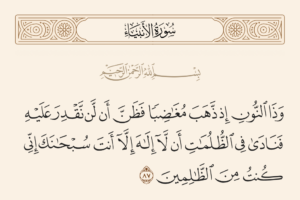 سُورَةُ الأَنبِيَاءِ
بِسْمِ اللَّهِ الرَّحْمَٰنِ الرَّحِيمِ
وَذَا ٱلنُّونِ إِذ ذَّهَبَ مُغَٰضِبًا فَظَنَّ أَن لَّن نَّقْدِرَ عَلَيْهِ
فَنَادَىٰ فِي ٱلظُّلُمَٰتِ أَن لَّآ إِلَٰهَ إِلَّآ أَنتَ سُبْحَٰنَكَ إِنِّي
كُنتُ مِنَ ٱلظَّٰلِمِينَ ٨٧